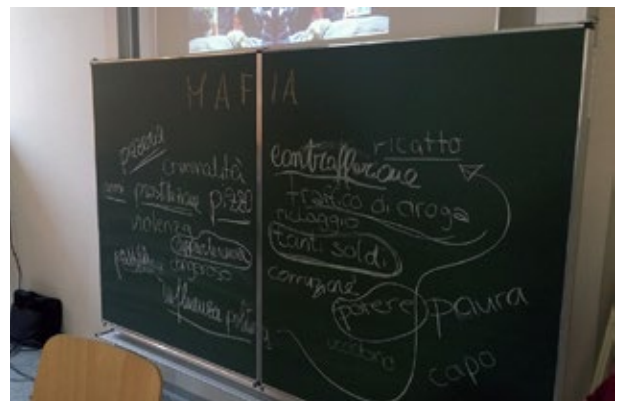 MAFIA
paura
criminalità
prostituzione pizzo
violenza
pericoloso
influenza politica
ricatto
contraffazione
traffico di droga
riciclaggio
tanti soldi
corruzione
potere
paura
capo